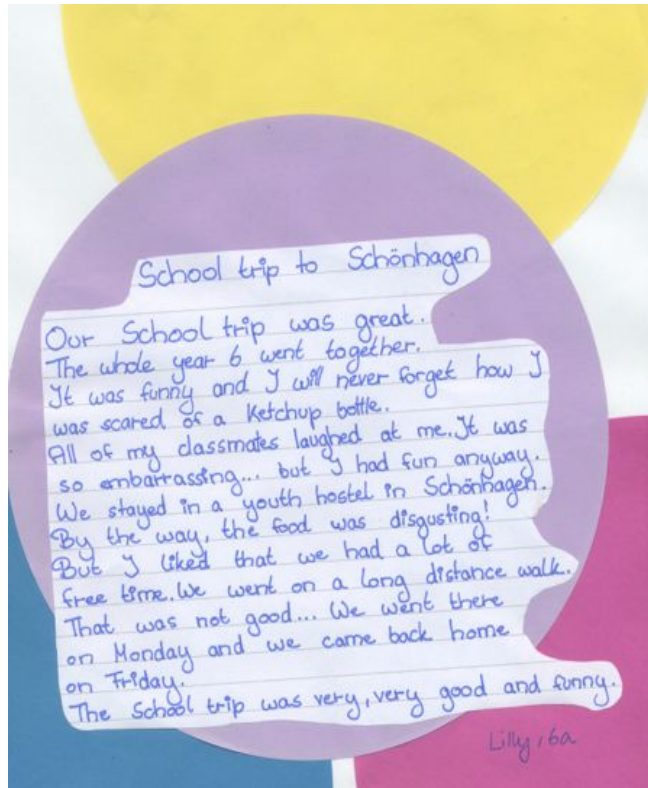 School trip to Schönhagen
Our School trip was great.
The whole year 6 went together.
It was funny and I will never forget how I
was scared of a Ketchup bottle.
All of my classmates laughed at me. It was
so embarrassing... but I had fun anyway.
We stayed in a youth hostel in Schönhagen.
By the way, the food was disgusting!
But I liked that we had a lot of
free time. We went on a long distance walk.
That was not good... We went there
on Monday and we came back home
on Friday.
The School trip was very, very good and funny.
Lilly, 6a